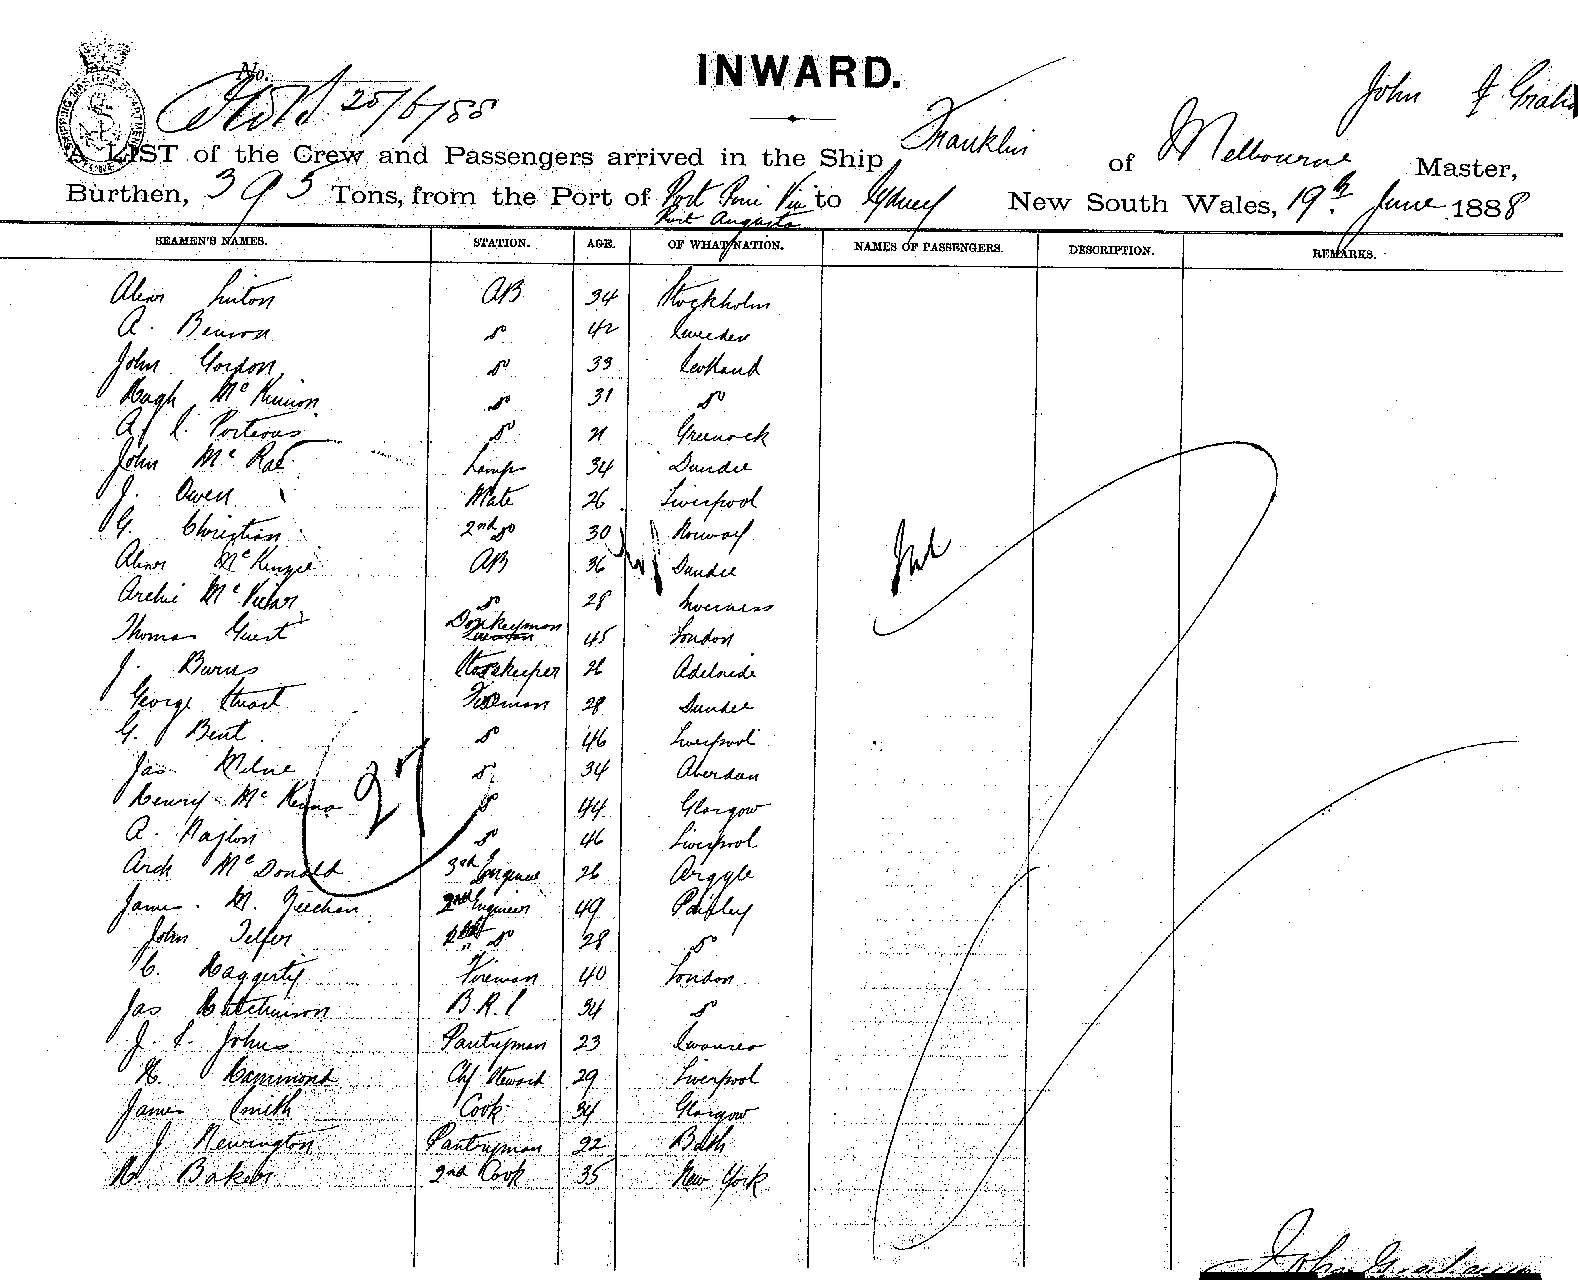 INWARD.
No.
25/6/88
John J Graham
A LIST of the Crew and Passengers arrived in the Ship Franklin of Melbourne Master,
Burthen, 395 Tons, from the Port of Port Pirie Via to Sydney New South Wales, 19th June 1888
Port Augusta
SEAMEN'S NAMES. STATION. AGE. OF WHAT NATION. NAMES OF PASSENGERS. DESCRIPTION. REMARKS.
Alexr Linton AB 34 Stockholm
A. Benson do 42 Sweden
John Gordon do 33 Scotland
Hugh McKinnon do 31 do
A. Porteous do 21 Greenock
John McRae Lamps 34 Dundee
J. Owen Mate 26 Liverpool
G. Christian 2nd do 30 Norway
Alexr McKenzie AB 36 Dundee
Archie McVicar do 28 Inverness
Thomas Guest Donkeyman 45 London
J. Burns Storekeeper 26 Adelaide
George Stuart Fireman 28 Dundee
G. Bent do 46 Liverpool
Jas Milne do 34 Aberdeen
Henry McKenna do 44 Glasgow
A. Naylon do 46 Liverpool
27
Arch McDonald 3rd Engineer 26 Argyle
James M. Geechan 2nd Engineer 49 Paisley
John Telfer do 28 do
C. Haggerty Fireman 40 London
Jas Hutchinson 34 do
J. S. Johns Pantryman 23 Swansea
H. Hammond Chf Steward 29 Liverpool
James Smith Cook 34 Glasgow
J Newington Pantryman 22 Bath
H. Baker 2nd Cook 35 New York
John Graham